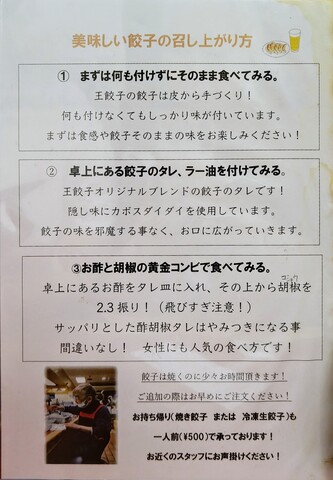 美味しい餃子の召し上がり方
① まずは何も付けずにそのまま食べてみる。
王餃子の餃子は皮から手づくり！
何も付けなくてもしっかり味が付いています。
まずは食感や餃子そのままの味をお楽しみください！
② 卓上にある餃子のタレ、ラー油を付けてみる。
王餃子オリジナルブレンドの餃子のタレです！
隠し味にカボスダイダイを使用しています。
餃子の味を邪魔する事なく、お口に広がっていきます。
③お酢と胡椒の黄金コンビで食べてみる。
コショウ
卓上にあるお酢をタレ皿に入れ、その上から胡椒を
2.3 振り！（飛びすぎ注意！）
サッパリとした酢胡椒タレはやみつきになる事
間違いなし！ 女性にも人気の食べ方です！
餃子は焼くのに少々お時間頂きます！
ご追加の際はお早めにご注文ください！
お持ち帰り(焼き餃子 または 冷凍生餃子)も
一人前(¥500)で承っております！
お近くのスタッフにお声掛けください！